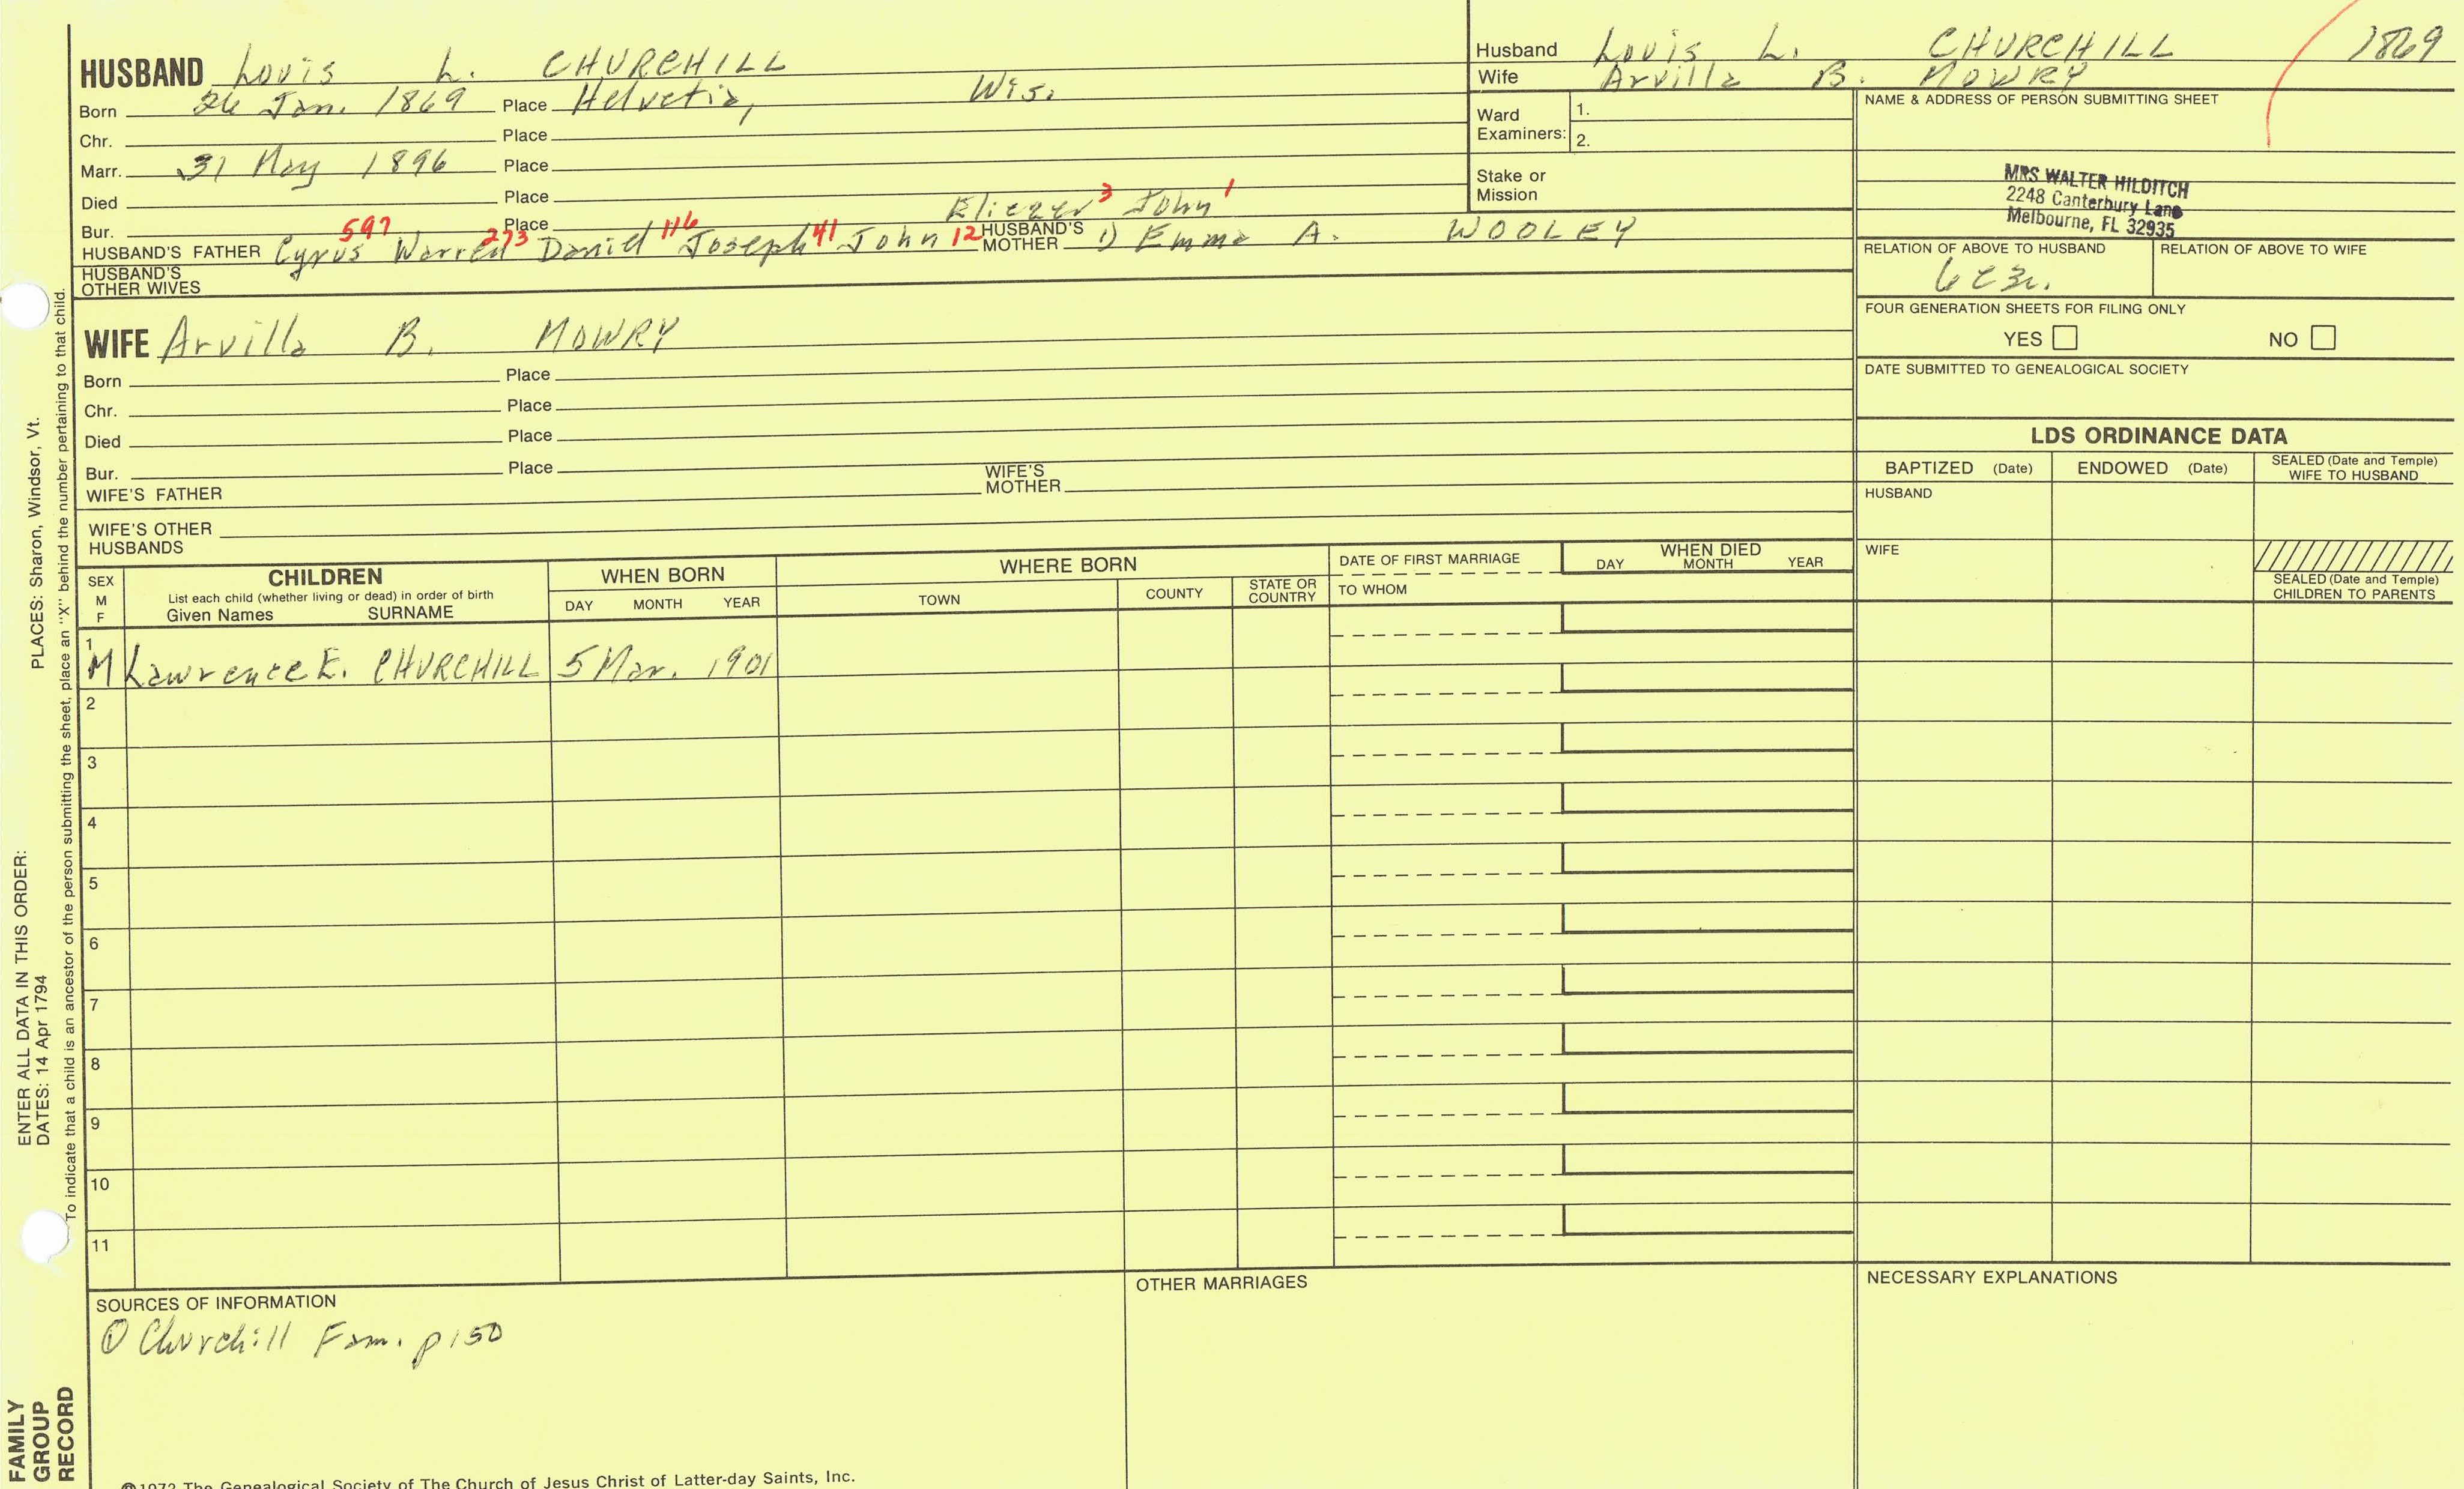 HUSBAND Louis L. CHURCHILL
Born 26 Jan. 1869 Place Helvetia, Wis.
Chr. Place
Marr. 31 May 1896 Place
Died Place
Eliezer 3 John 1
Bur. Place
597 273 116 41 12
HUSBAND'S FATHER Cyrus Warren Daniel Joseph John HUSBAND'S MOTHER 1) Emma A. WOOLEY
HUSBAND'S OTHER WIVES
WIFE Arvilla B. MOWRY
Born Place
Chr. Place
Died Place
Bur. Place
WIFE'S FATHER WIFE'S MOTHER
WIFE'S OTHER HUSBANDS
Husband Louis L. CHURCHILL 1869
Wife Arvilla B. MOWRY
Ward Examiners: 1.
2.
Stake or Mission
NAME & ADDRESS OF PERSON SUBMITTING SHEET
MRS WALTER HILDITCH
2248 Canterbury Lane
Melbourne, FL 32935
RELATION OF ABOVE TO HUSBAND RELATION OF ABOVE TO WIFE
6C3r.
FOUR GENERATION SHEETS FOR FILING ONLY
YES NO
DATE SUBMITTED TO GENEALOGICAL SOCIETY
LDS ORDINANCE DATA
BAPTIZED (Date) ENDOWED (Date) SEALED (Date and Temple) WIFE TO HUSBAND
HUSBAND
WIFE
SEALED (Date and Temple) CHILDREN TO PARENTS
SEX M F
CHILDREN
List each child (whether living or dead) in order of birth
Given Names SURNAME
WHEN BORN
DAY MONTH YEAR
WHERE BORN
TOWN COUNTY STATE OR COUNTRY
DATE OF FIRST MARRIAGE
TO WHOM
WHEN DIED
DAY MONTH YEAR
1
M Lawrence E. CHURCHILL 5 Mar. 1901
2
3
4
5
6
7
8
9
10
11
SOURCES OF INFORMATION
① Churchill Fam. p150
OTHER MARRIAGES
NECESSARY EXPLANATIONS
©1972 The Genealogical Society of The Church of Jesus Christ of Latter-day Saints, Inc.
ENTER ALL DATA IN THIS ORDER:
DATES: 14 Apr 1794 PLACES: Sharon, Windsor, Vt.
To indicate that a child is an ancestor of the person submitting the sheet, place an "X" behind the number pertaining to that child.
FAMILY
GROUP
RECORD